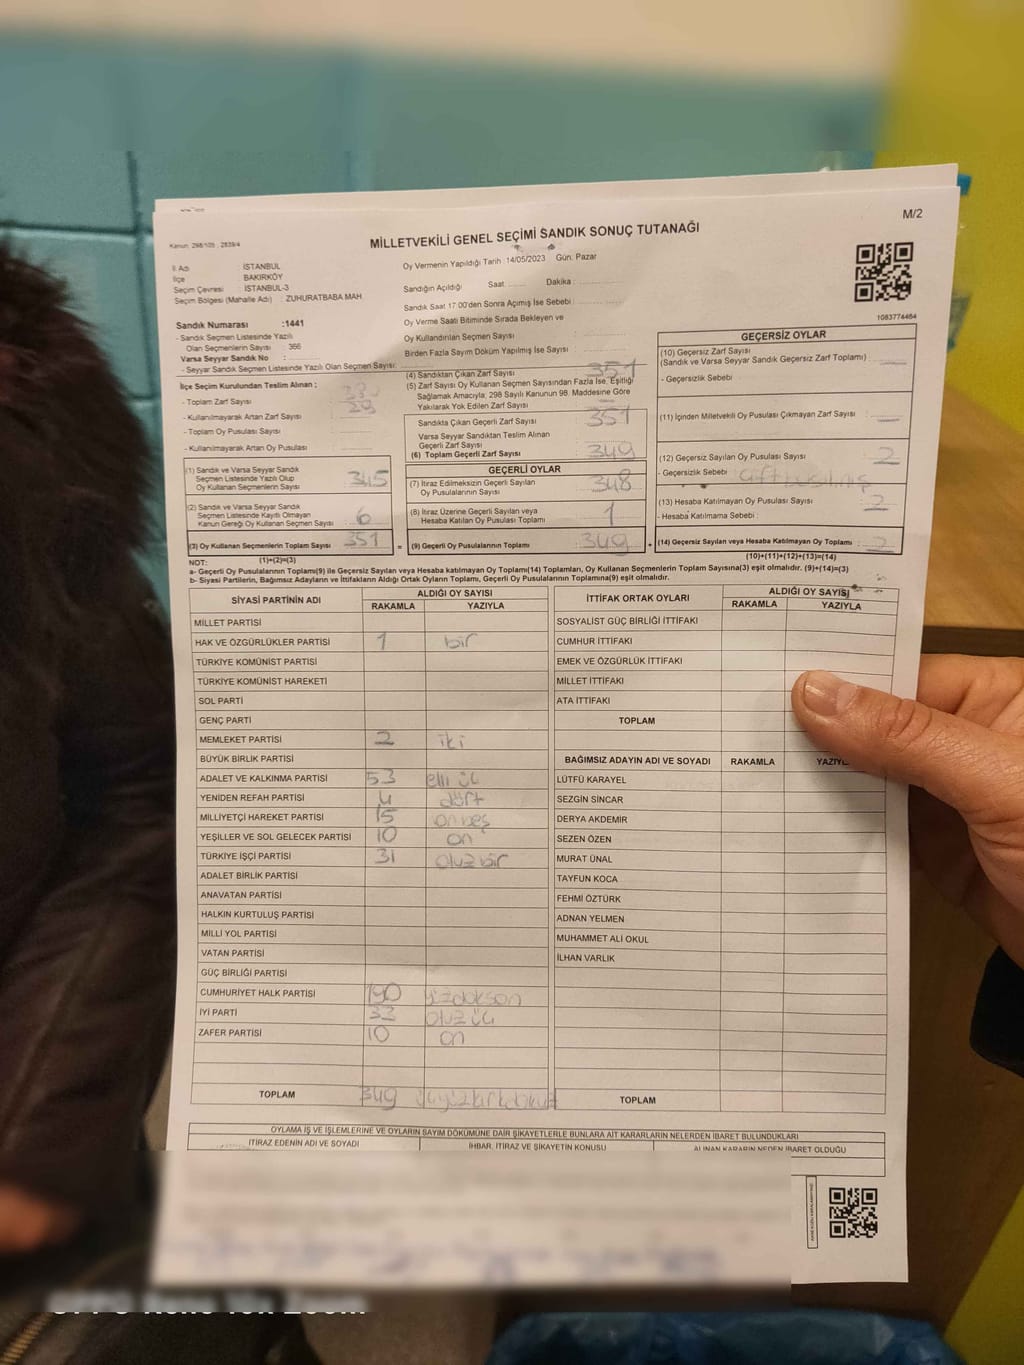 M/2
Kanun: 298/105 , 2839/4
MİLLETVEKİLİ GENEL SEÇİMİ SANDIK SONUÇ TUTANAĞI
İl Adı : İSTANBUL
İlçe : BAKIRKÖY
Seçim Çevresi : İSTANBUL-3
Seçim Bölgesi (Mahalle Adı) : ZUHURATBABA MAH.
Oy Vermenin Yapıldığı Tarih 14/05/2023 Gün: Pazar
Sandığın Açıldığı Saat Dakika :
Sandık Saat 17:00'den Sonra Açılmış İse Sebebi :
Oy Verme Saati Bitiminde Sırada Bekleyen ve
Oy Kullandırılan Seçmen Sayısı :
Birden Fazla Sayım Döküm Yapılmış İse Sayısı :
1083774464
Sandık Numarası :1441
- Sandık Seçmen Listesinde Yazılı
Olan Seçmenlerin Sayısı : 366
Varsa Seyyar Sandık No :
- Seyyar Sandık Seçmen Listesinde Yazılı Olan Seçmen Sayısı:
İlçe Seçim Kurulundan Teslim Alınan ;
- Toplam Zarf Sayısı :
- Kullanılmayarak Artan Zarf Sayısı : 29
- Toplam Oy Pusulası Sayısı :
- Kullanılmayarak Artan Oy Pusulası :
(1) Sandık ve Varsa Seyyar Sandık
Seçmen Listesinde Yazılı Olup
Oy Kullanan Seçmenlerin Sayısı : 345
(2) Sandık ve Varsa Seyyar Sandık
Seçmen Listesinde Kayıtlı Olmayan
Kanun Gereği Oy Kullanan Seçmen Sayısı : 6
(3) Oy Kullanan Seçmenlerin Toplam Sayısı : 351
(4) Sandıktan Çıkan Zarf Sayısı : 351
(5) Zarf Sayısı Oy Kullanan Seçmen Sayısından Fazla İse, Eşitliği
Sağlamak Amacıyla, 298 Sayılı Kanunun 98. Maddesine Göre
Yakılarak Yok Edilen Zarf Sayısı :
Sandıkta Çıkan Geçerli Zarf Sayısı : 351
Varsa Seyyar Sandıktan Teslim Alınan
Geçerli Zarf Sayısı :
(6) Toplam Geçerli Zarf Sayısı : 349
GEÇERLİ OYLAR
(7) İtiraz Edilmeksizin Geçerli Sayılan
Oy Pusulalarının Sayısı : 348
(8) İtiraz Üzerine Geçerli Sayılan veya
Hesaba Katılan Oy Pusulası Toplamı : 1
= (9) Geçerli Oy Pusulalarının Toplamı : 349 +
GEÇERSİZ OYLAR
(10) Geçersiz Zarf Sayısı
(Sandık ve Varsa Seyyar Sandık Geçersiz Zarf Toplamı) : —
- Geçersizlik Sebebi :
(11) İçinden Milletvekili Oy Pusulası Çıkmayan Zarf Sayısı : —
(12) Geçersiz Sayılan Oy Pusulası Sayısı : 2
- Geçersizlik Sebebi : çift basılmış
(13) Hesaba Katılmayan Oy Pusulası Sayısı : 2
- Hesaba Katılmama Sebebi :
(14) Geçersiz Sayılan veya Hesaba Katılmayan Oy Toplamı : 2
NOT: (1)+(2)=(3) (10)+(11)+(12)+(13)=(14)
a- Geçerli Oy Pusulalarının Toplamı(9) ile Geçersiz Sayılan veya Hesaba katılmayan Oy Toplamı(14) Toplamları, Oy Kullanan Seçmenlerin Toplam Sayısına(3) eşit olmalıdır. (9)+(14)=(3)
b- Siyasi Partilerin, Bağımsız Adayların ve İttifakların Aldığı Ortak Oyların Toplamı, Geçerli Oy Pusulalarının Toplamına(9) eşit olmalıdır.
SİYASİ PARTİNİN ADI ALDIĞI OY SAYISI
RAKAMLA YAZIYLA
MİLLET PARTİSİ
HAK VE ÖZGÜRLÜKLER PARTİSİ 1 bir
TÜRKİYE KOMÜNİST PARTİSİ
TÜRKİYE KOMÜNİST HAREKETİ
SOL PARTİ
GENÇ PARTİ
MEMLEKET PARTİSİ 2 iki
BÜYÜK BİRLİK PARTİSİ
ADALET VE KALKINMA PARTİSİ 53 elli üç
YENİDEN REFAH PARTİSİ 4 dört
MİLLİYETÇİ HAREKET PARTİSİ 15 onbeş
YEŞİLLER VE SOL GELECEK PARTİSİ 10 on
TÜRKİYE İŞÇİ PARTİSİ 31 otuzbir
ADALET BİRLİK PARTİSİ
ANAVATAN PARTİSİ
HALKIN KURTULUŞ PARTİSİ
MİLLİ YOL PARTİSİ
VATAN PARTİSİ
GÜÇ BİRLİĞİ PARTİSİ
CUMHURİYET HALK PARTİSİ 190 yüzdokson
İYİ PARTİ 33 otuz üç
ZAFER PARTİSİ 10 on
TOPLAM 349
İTTİFAK ORTAK OYLARI ALDIĞI OY SAYISI
RAKAMLA YAZIYLA
SOSYALİST GÜÇ BİRLİĞİ İTTİFAKI
CUMHUR İTTİFAKI
EMEK VE ÖZGÜRLÜK İTTİFAKI
MİLLET İTTİFAKI
ATA İTTİFAKI
TOPLAM
BAĞIMSIZ ADAYIN ADI VE SOYADI RAKAMLA
LÜTFÜ KARAYEL
SEZGİN SİNCAR
DERYA AKDEMİR
SEZEN ÖZEN
MURAT ÜNAL
TAYFUN KOCA
FEHMİ ÖZTÜRK
ADNAN YELMEN
MUHAMMET ALİ OKUL
İLHAN VARLIK
TOPLAM
OYLAMA İŞ VE İŞLEMLERİNE VE OYLARIN SAYIM DÖKÜMÜNE DAİR ŞİKAYETLERLE BUNLARA AİT KARARLARIN NELERDEN İBARET BULUNDUKLARI
İTİRAZ EDENİN ADI VE SOYADI İHBAR, İTİRAZ VE ŞİKAYETİN KONUSU ALINAN KARARIN NEDEN İBARET OLDUĞU